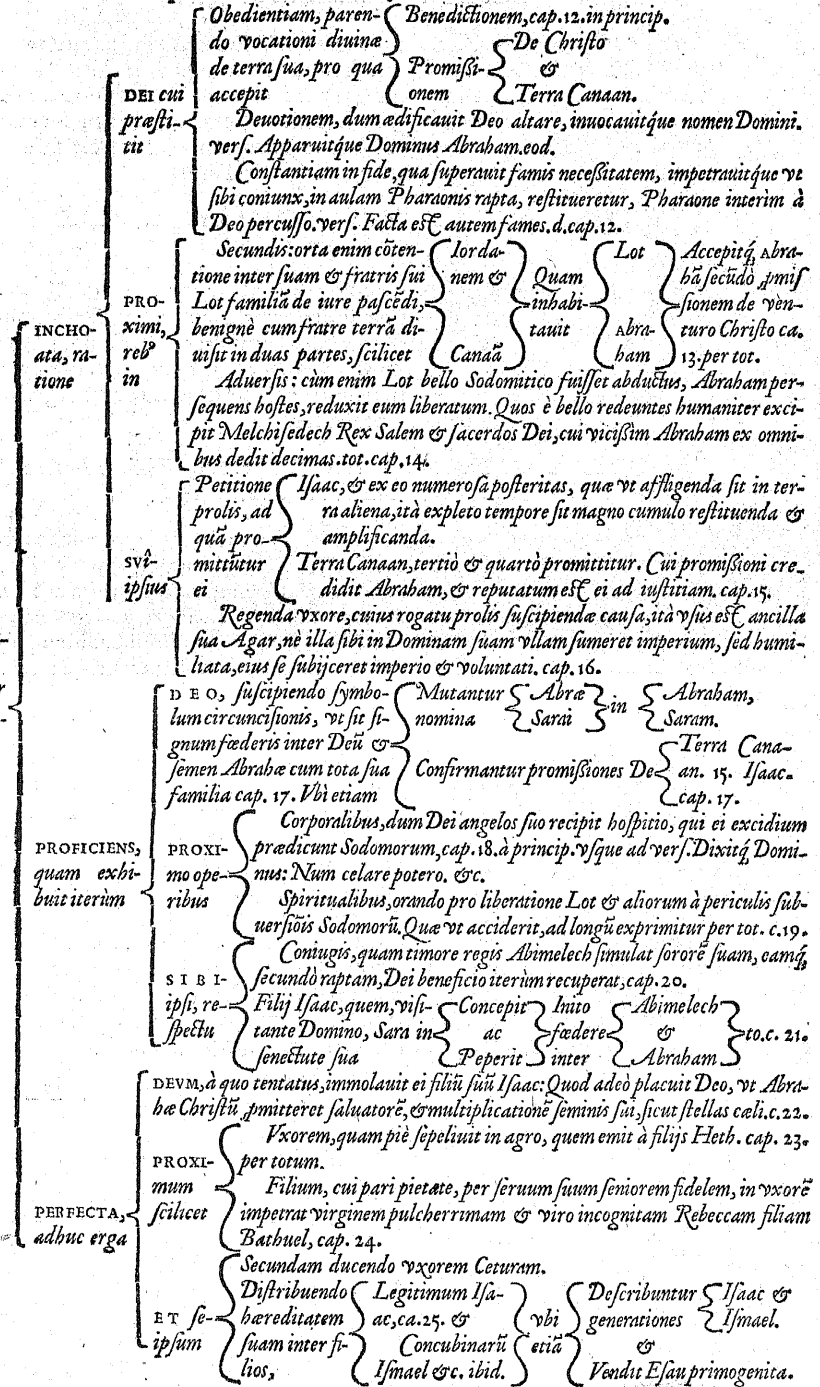 Obedientiam, paren-
do vocationi diuinæ
de terra sua, pro qua
accepit
Benedictionem, cap. 12. in princip.
Promißi-
onem
De Christo
&
Terra Canaan.
DEI cui
præsti-
tit
Deuotionem, dum ædificauit Deo altare, inuocauitq́ue nomen Domini.
vers. Apparuitq́ue Dominus Abraham. eod.
Constantiam in fide, qua superauit famis neceßitatem, impetrauitq́ue vt
sibi coniunx, in aulam Pharaonis rapta, restitueretur, Pharaone interim à
Deo percusso. vers. Facta est autem fames. d. cap. 12.
INCHO-
ata, ra-
tione
PRO-
ximi,
rebꝰ
in
Secundis: orta enim cõten-
tione inter suam & fratris sui
Lot familiã de iure pascẽdi,
benignè cum fratre terrã di-
uisit in duas partes, scilicet
Iorda-
nem &
Canaã
Quam
inhabi-
tauit
Lot
Abra-
ham
Accepitq́, Abra-
hã secũdò ꝓmis
sionem de ven-
turo Christo ca.
13. per tot.
Aduersis: cùm enim Lot bello Sodomitico fuisset abductus, Abraham per-
sequens hostes, reduxit eum liberatum. Quos è bello redeuntes humaniter exci-
pit Melchisedech Rex Salem & sacerdos Dei, cui vicißim Abraham ex omni-
bus dedit decimas. tot. cap. 14.
SVI-
ipsius
Petitione
prolis, ad
quã pro-
mittũtur
ei
Isaac, & ex eo numerosa posteritas, quæ vt affligenda sit in ter-
ra aliena, ità expleto tempore sit magno cumulo restituenda &
amplificanda.
Terra Canaan, tertiò & quartò promittitur. Cui promißioni cre-
didit Abraham, & reputatum est ei ad iustitiam. cap. 15.
Regenda vxore, cuius rogatu prolis suscipiendæ causa, ità vsus est ancilla
sua Agar, nè illa sibi in Dominam suam vllam sumeret imperium, sed humi-
liata, eius se subijceret imperio & voluntati. cap. 16.
PROFICIENS,
quam exhi-
buit iterùm
DEO, suscipiendo symbo-
lum circuncisionis, vt sit si-
gnum fœderis inter Deũ &
semen Abrahæ cum tota sua
familia cap. 17. Vbi etiam
Mutantur
nomina
Abræ
Sarai
in
Abraham,
Saram.
Confirmantur promißiones De
Terra Cana-
an. 15. Isaac.
cap. 17.
PROXI-
mo ope-
ribus
Corporalibus, dum Dei angelos suo recipit hospitio, qui ei excidium
prædicunt Sodomorum, cap. 18. à princip. vsque ad vers. Dixitq́ Domi-
nus: Num celare potero. &c.
Spiritualibus, orando pro liberatione Lot & aliorum à periculis sub-
uersiõis Sodomorũ. Quæ vt acciderit, ad longũ exprimitur per tot. c. 19.
SIBI-
ipsi, re-
spectu
Coniugis, quam timore regis Abimelech simulat sororẽ suam, eamq́,
secundò raptam, Dei beneficio iterùm recuperat, cap. 20.
Filij Isaac, quem, visi-
tante Domino, Sara in
senectute sua
Concepit
ac
Peperit
Inito
fœdere
inter
Abimelech
&
Abraham
to. c. 21.
PERFECTA,
adhuc erga
DEVM, à quo tentatus, immolauit ei filiũ suũ Isaac: Quod adeò placuit Deo, vt Abra-
hæ Christũ ꝓmitteret saluatorẽ, & multiplicationẽ seminis sui, sicut stellas cæli. c. 22.
PROXI-
mum
scilicet
Vxorem, quam piè sepeliuit in agro, quem emit à filijs Heth. cap. 23.
per totum.
Filium, cui pari pietate, per seruum suum seniorem fidelem, in vxorẽ
impetrat virginem pulcherrimam & viro incognitam Rebeccam filiam
Bathuel, cap. 24.
ET se-
ipsum
Secundam ducendo vxorem Ceturam.
Distribuendo
hæreditatem
suam inter fi-
lios,
Legitimum Isa-
ac, ca. 25. &
Concubinarũ
Ismael &c. ibid.
vbi
etiã
Describuntur
generationes
&
Vendit Esau primogenita.
Isaac &
Ismael.